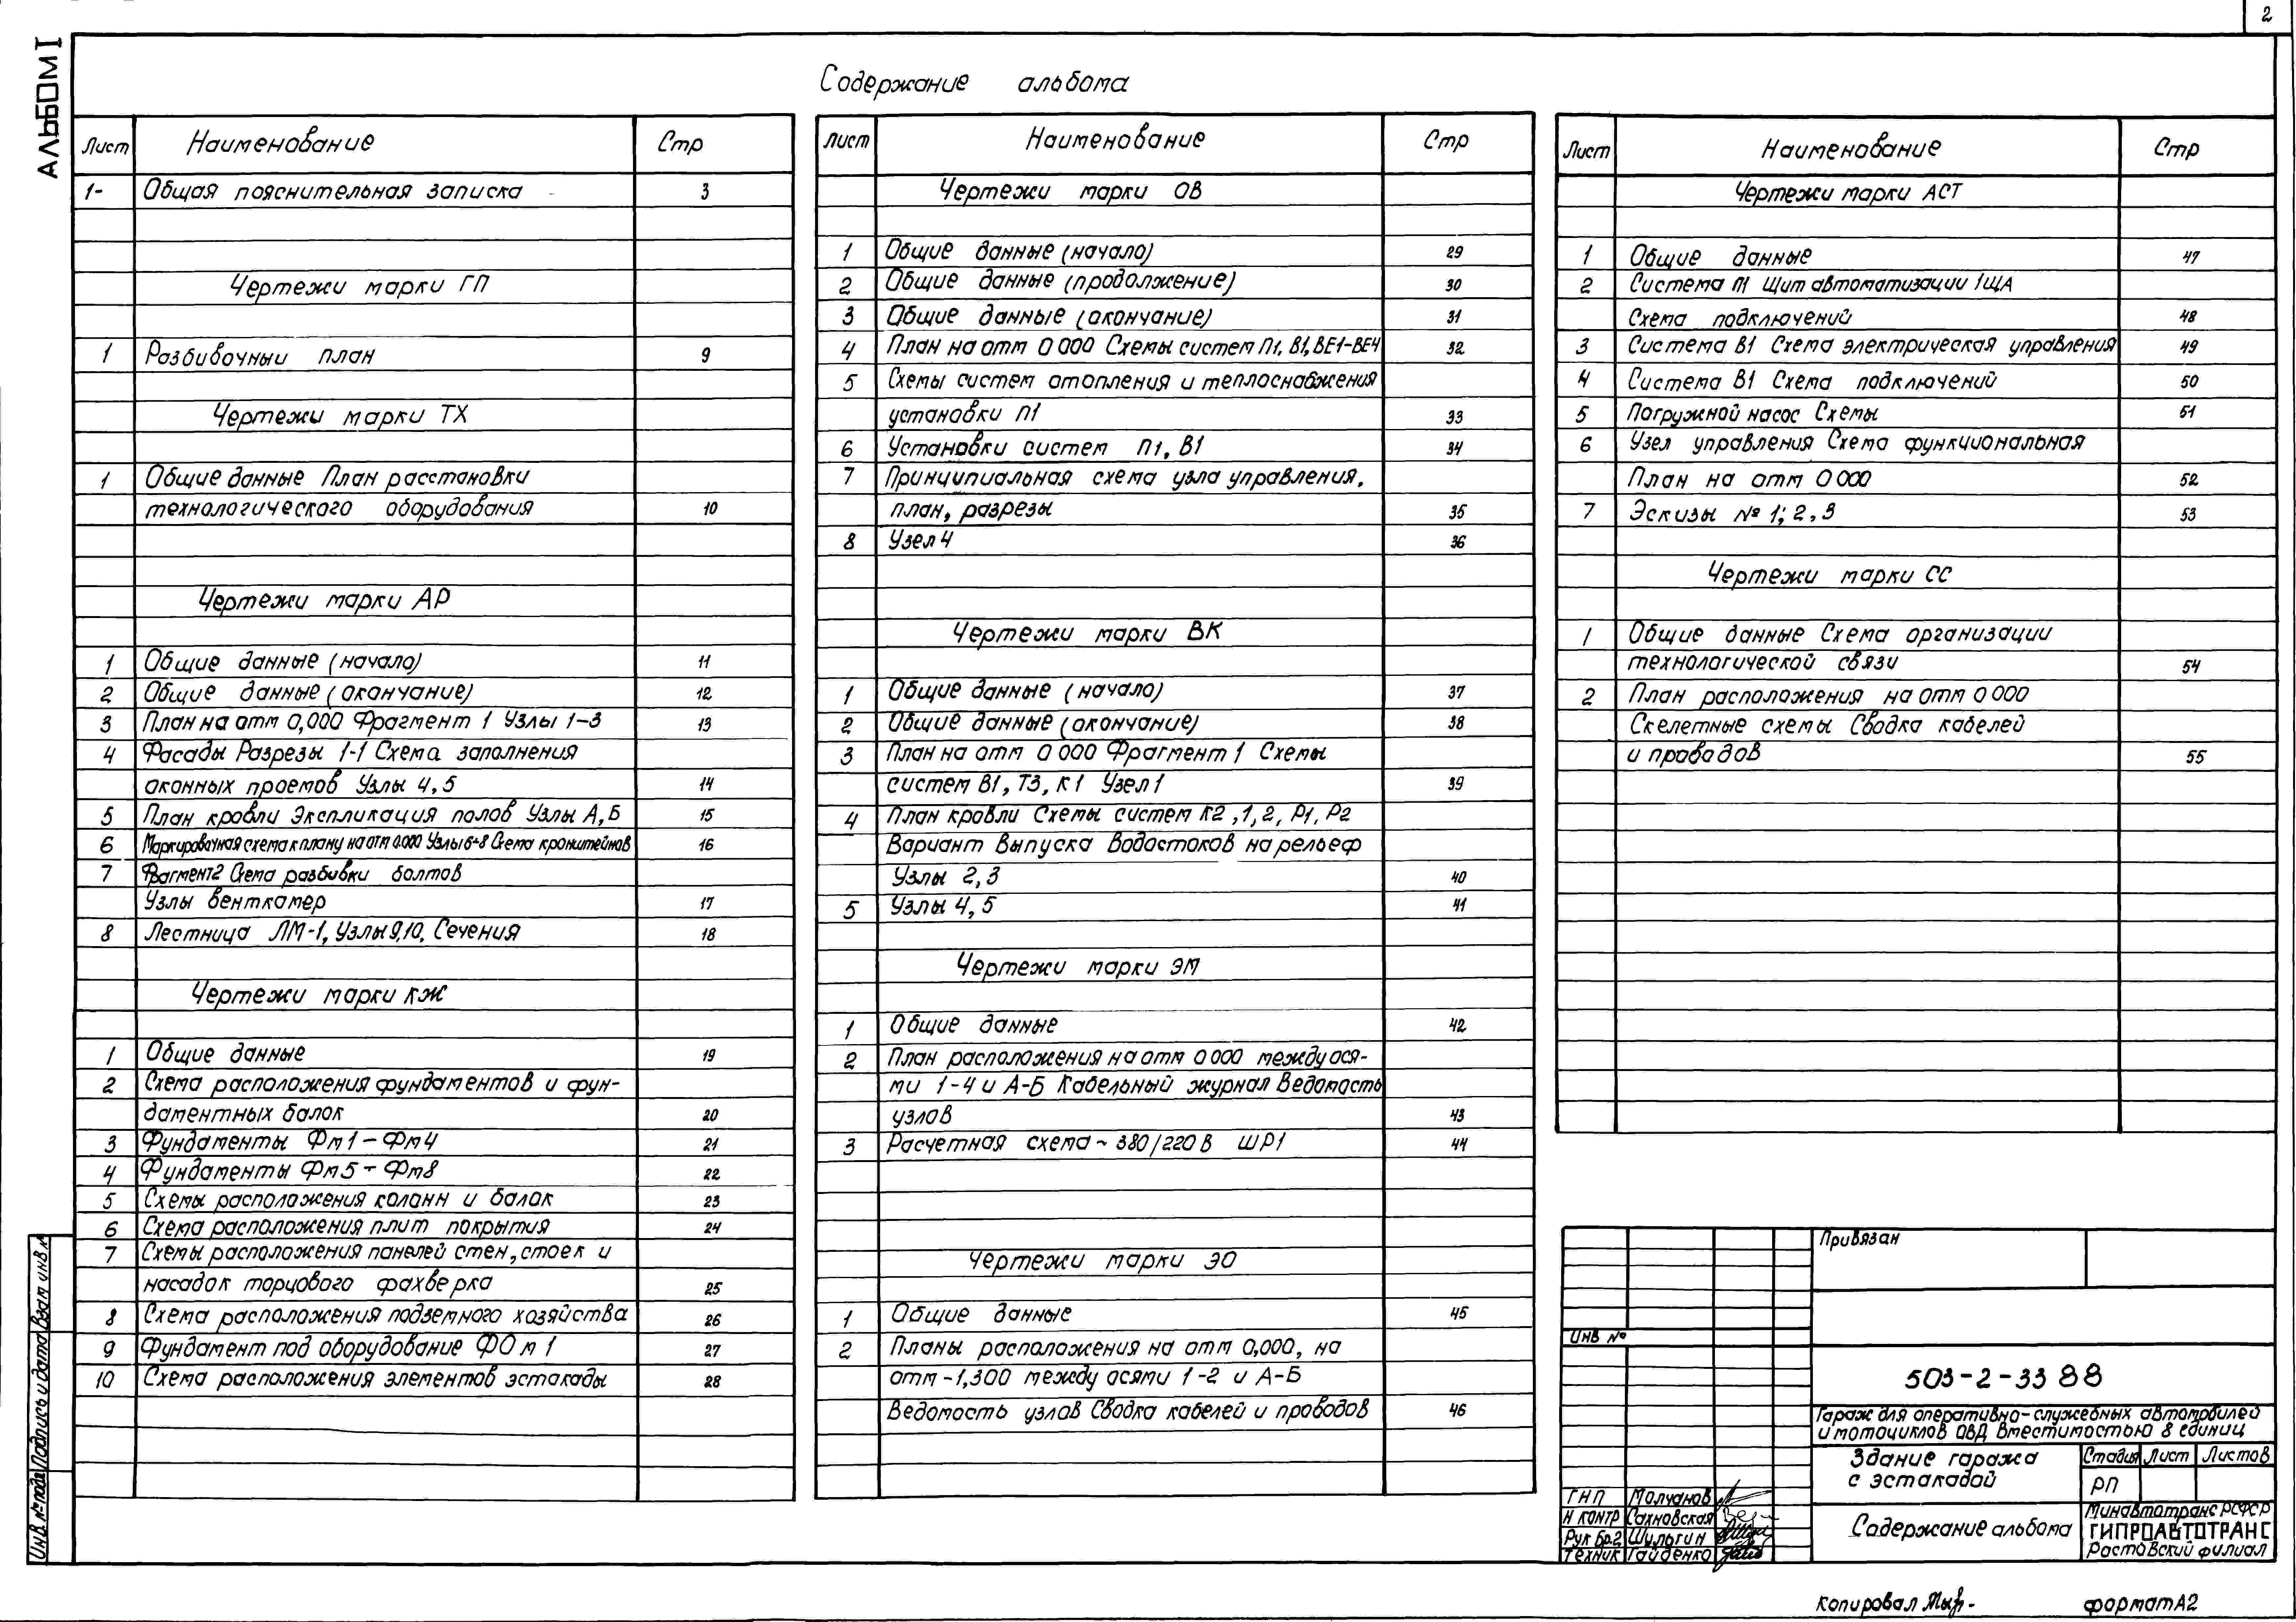 2
АЛЬБОМ I
Содержание альбома
Лист Наименование Стр
1- Общая пояснительная записка 3
Чертежи марки ГП
1 Разбивочный план 9
Чертежи марки ТХ
1 Общие данные План расстановки
технологического оборудования 10
Чертежи марки АР
1 Общие данные (начало) 11
2 Общие данные (окончание) 12
3 План на отм 0,000 Фрагмент 1 Узлы 1-3 13
4 Фасады Разрезы 1-1 Схема заполнения
оконных проемов Узлы 4,5 14
5 План кровли Экспликация полов Узлы А,Б 15
6 Маркировочная схема к плану на отм 0.000 Узлы 6-8 Схема кронштейнов 16
7 Фрагмент 2 Схема разбивки болтов
Узлы венткамер 17
8 Лестница ЛМ-1, Узлы 9,10, Сечения 18
Чертежи марки КЖ
1 Общие данные 19
2 Схема расположения фундаментов и фун-
даментных балок 20
3 Фундаменты Фм1-Фм4 21
4 Фундаменты Фм5-Фм8 22
5 Схемы расположения колонн и балок 23
6 Схема расположения плит покрытия 24
7 Схемы расположения панелей стен, стоек и
насадок торцового фахверка 25
8 Схема расположения подземного хозяйства 26
9 Фундамент под оборудование ФОм1 27
10 Схема расположения элементов эстакады 28
Лист Наименование Стр
Чертежи марки ОВ
1 Общие данные (начало) 29
2 Общие данные (продолжение) 30
3 Общие данные (окончание) 31
4 План на отм 0 000 Схемы систем П1, В1, ВЕ1-ВЕ4 32
5 Схемы систем отопления и теплоснабжения
установки П1 33
6 Установки систем П1, В1 34
7 Принципиальная схема узла управления.
план, разрезы 35
8 Узел 4 36
Чертежи марки ВК
1 Общие данные (начало) 37
2 Общие данные (окончание) 38
3 План на отм 0 000 Фрагмент 1 Схемы
систем В1, Т3, К1 Узел 1 39
4 План кровли Схемы систем К2, 1, 2, Р1, Р2
Вариант выпуска водостоков на рельеф
Узлы 2,3 40
5 Узлы 4, 5 41
Чертежи марки ЭМ
1 Общие данные 42
2 План расположения на отм 0 000 между ося-
ми 1-4 и А-Б Кабельный журнал Ведомость
узлов 43
3 Расчетная схема ~ 380/220 В ШР1 44
Чертежи марки ЭО
1 Общие данные 45
2 Планы расположения на отм 0,000, на
отм -1,300 между осями 1-2 и А-Б
Ведомость узлов Сводка кабелей и проводов 46
Лист Наименование Стр
Чертежи марки АСТ
1 Общие данные 47
2 Система П1 Щит автоматизации 1ЩА
Схема подключений 48
3 Система В1 Схема электрическая управления 49
4 Система В1 Схема подключений 50
5 Погружной насос Схемы 51
6 Узел управления Схема функциональная
План на отм 0 000 52
7 Эскизы № 1; 2, 3 53
Чертежи марки СС
1 Общие данные Схема организации
технологической связи 54
2 План расположения на отм 0 000
Скелетные схемы Сводка кабелей
и проводов 55
Привязан
Инв №
503-2-33 88
Гараж для оперативно-служебных автомобилей
и мотоциклов ОВД вместимостью 8 единиц
Здание гаража
с эстакадой
Стадия Лист Листов
РП
Содержание альбома
Минавтотранс РСФСР
ГИПРОАВТОТРАНС
Ростовский филиал
ГНП Молчанов
Н контр Сахновская
Рук бр.2 Шульгин
Техник Гайденко
Инв. № подл Подпись и дата Взам инв №
Копировал
формат А2